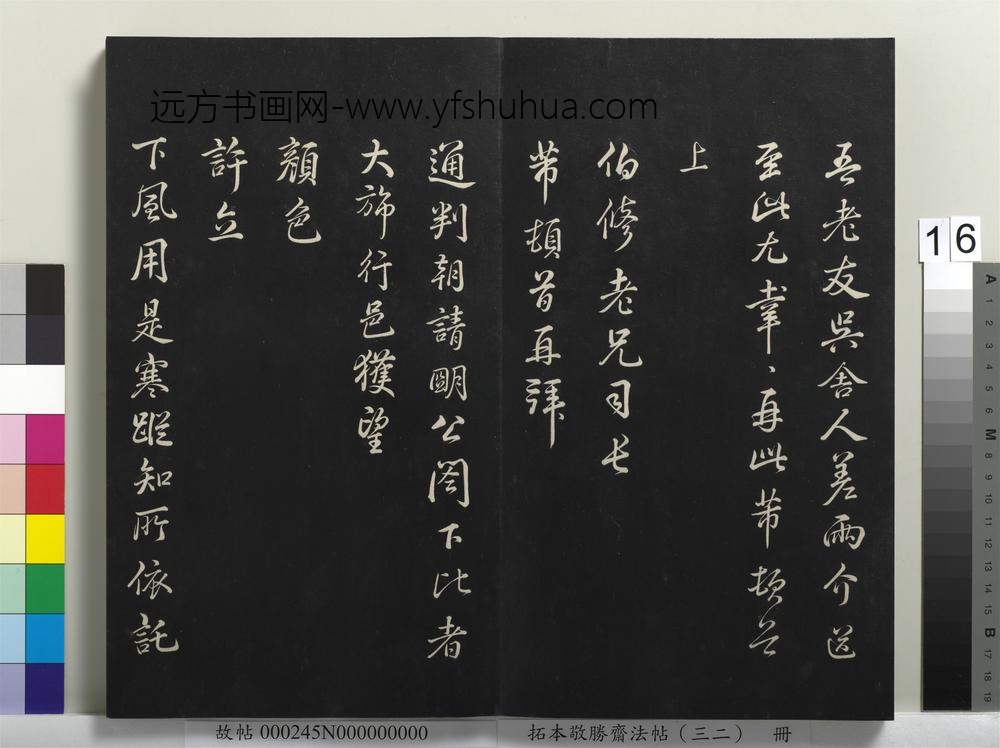 远方书画网-www.yfshuhua.com
吾老友吳舍人差兩介送
至此尤幸、再此芾頓首
上
伯脩老兄司長
芾頓首再拜
通判朝請明公閤下比者
大旆行邑獲望
顏色
許立
下風用是寒蹤知所依託
16
A 1 2 3 4 5 6 M 8 9 10 11 12 13 14 15 B 17 18 19
故帖 000245N000000000
拓本敬勝齋法帖（三二） 冊